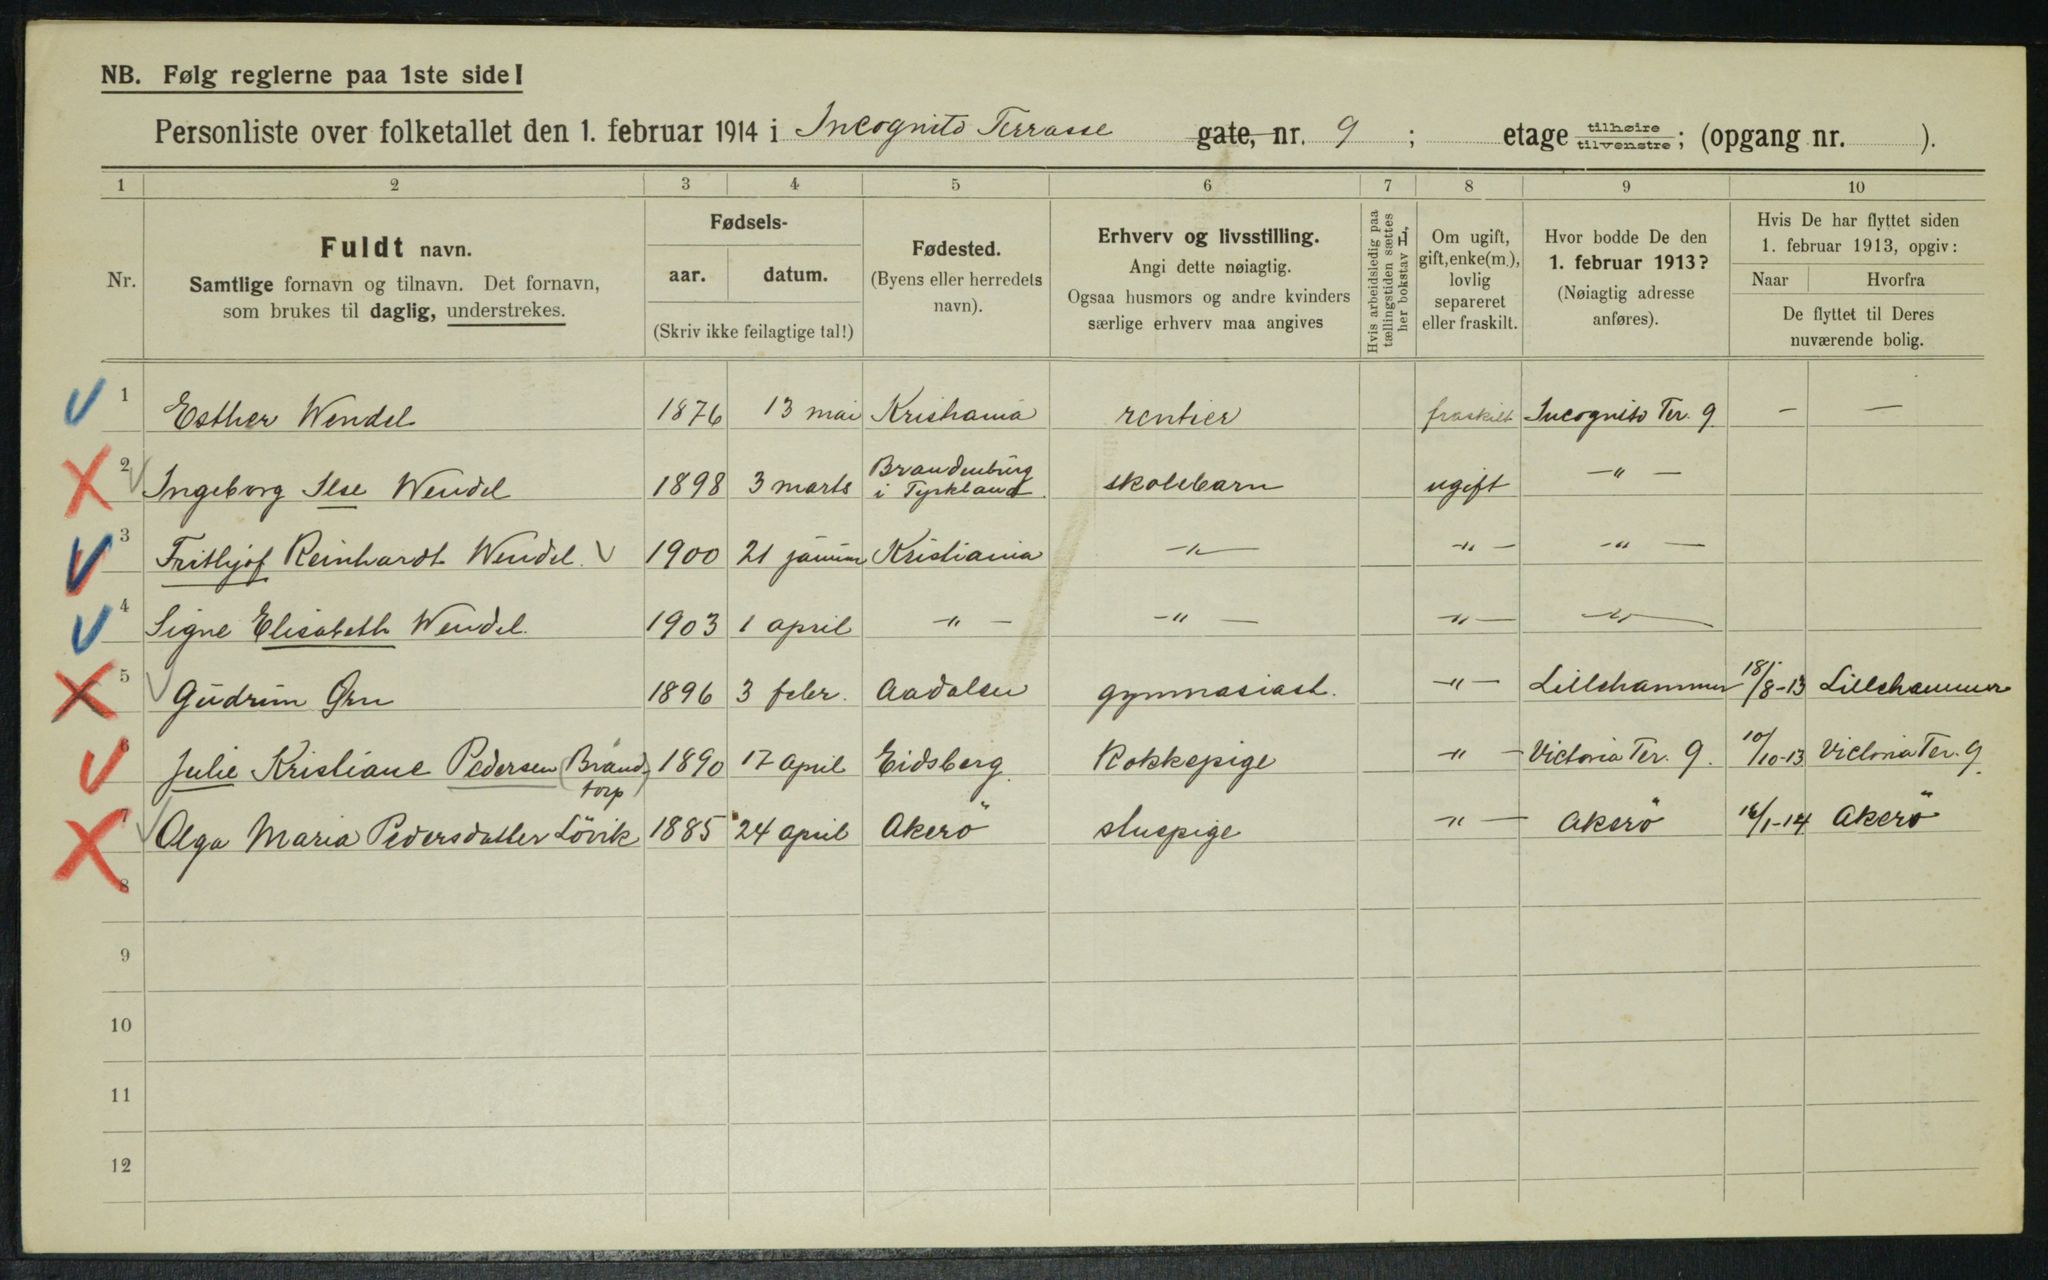 NB. Følg reglerne paa 1ste side!
Personliste over folketallet den 1. februar 1914 i Incognito Terrasse gate, nr. 9 ; etage tilhøire tilvenstre ; (opgang nr. ).
1 2 3 4 5 6 7 8 9 10
Nr.
Fuldt navn.
Samtlige fornavn og tilnavn. Det fornavn,
som brukes til daglig, understrekes.
Fødsels-
aar. datum.
(Skriv ikke feilagtige tal!)
Fødested.
(Byens eller herredets
navn).
Erhverv og livsstilling.
Angi dette nøiagtig.
Ogsaa husmors og andre kvinders
særlige erhverv maa angives
Hvis arbeidsledig paa
tællingstiden sættes
her bokstav H,
Om ugift,
gift, enke(m.),
lovlig
separeret
eller fraskilt.
Hvor bodde De den
1. februar 1913?
(Nøiagtig adresse
anføres).
Hvis De har flyttet siden
1. februar 1913, opgiv:
Naar Hvorfra
De flyttet til Deres
nuværende bolig.
1 Esther Wendel 1876 13 mai Kristiania rentier fraskilt Incognito Ter. 9 — —
2 Ingeborg Ilse Wendel 1898 3 marts Brandenburg i Tyskland skolebarn ugift —"—
3 Frithjof Reinhardt Wendel. 1900 21 januar Kristiania —"— —"— —"—
4 Signe Elisabeth Wendel. 1903 1 april —"— —"— —"— —"—
5 Gudrun Ørn 1896 3 febr. Aadalen gymnasiast. —"— Lillehammer 18/8-13 Lillehammer
6 Julie Kristiane Pedersen (Brandtorp) 1890 17 april Eidsberg. Kokkepige —"— Victoria Ter. 9. 10/10-13 Victoria Ter. 9.
7 Olga Maria Pedersdatter Lövik 1885 24 april Akerö stuepige —"— Akerö 16/1-14 Akerö
8
9
10
11
12